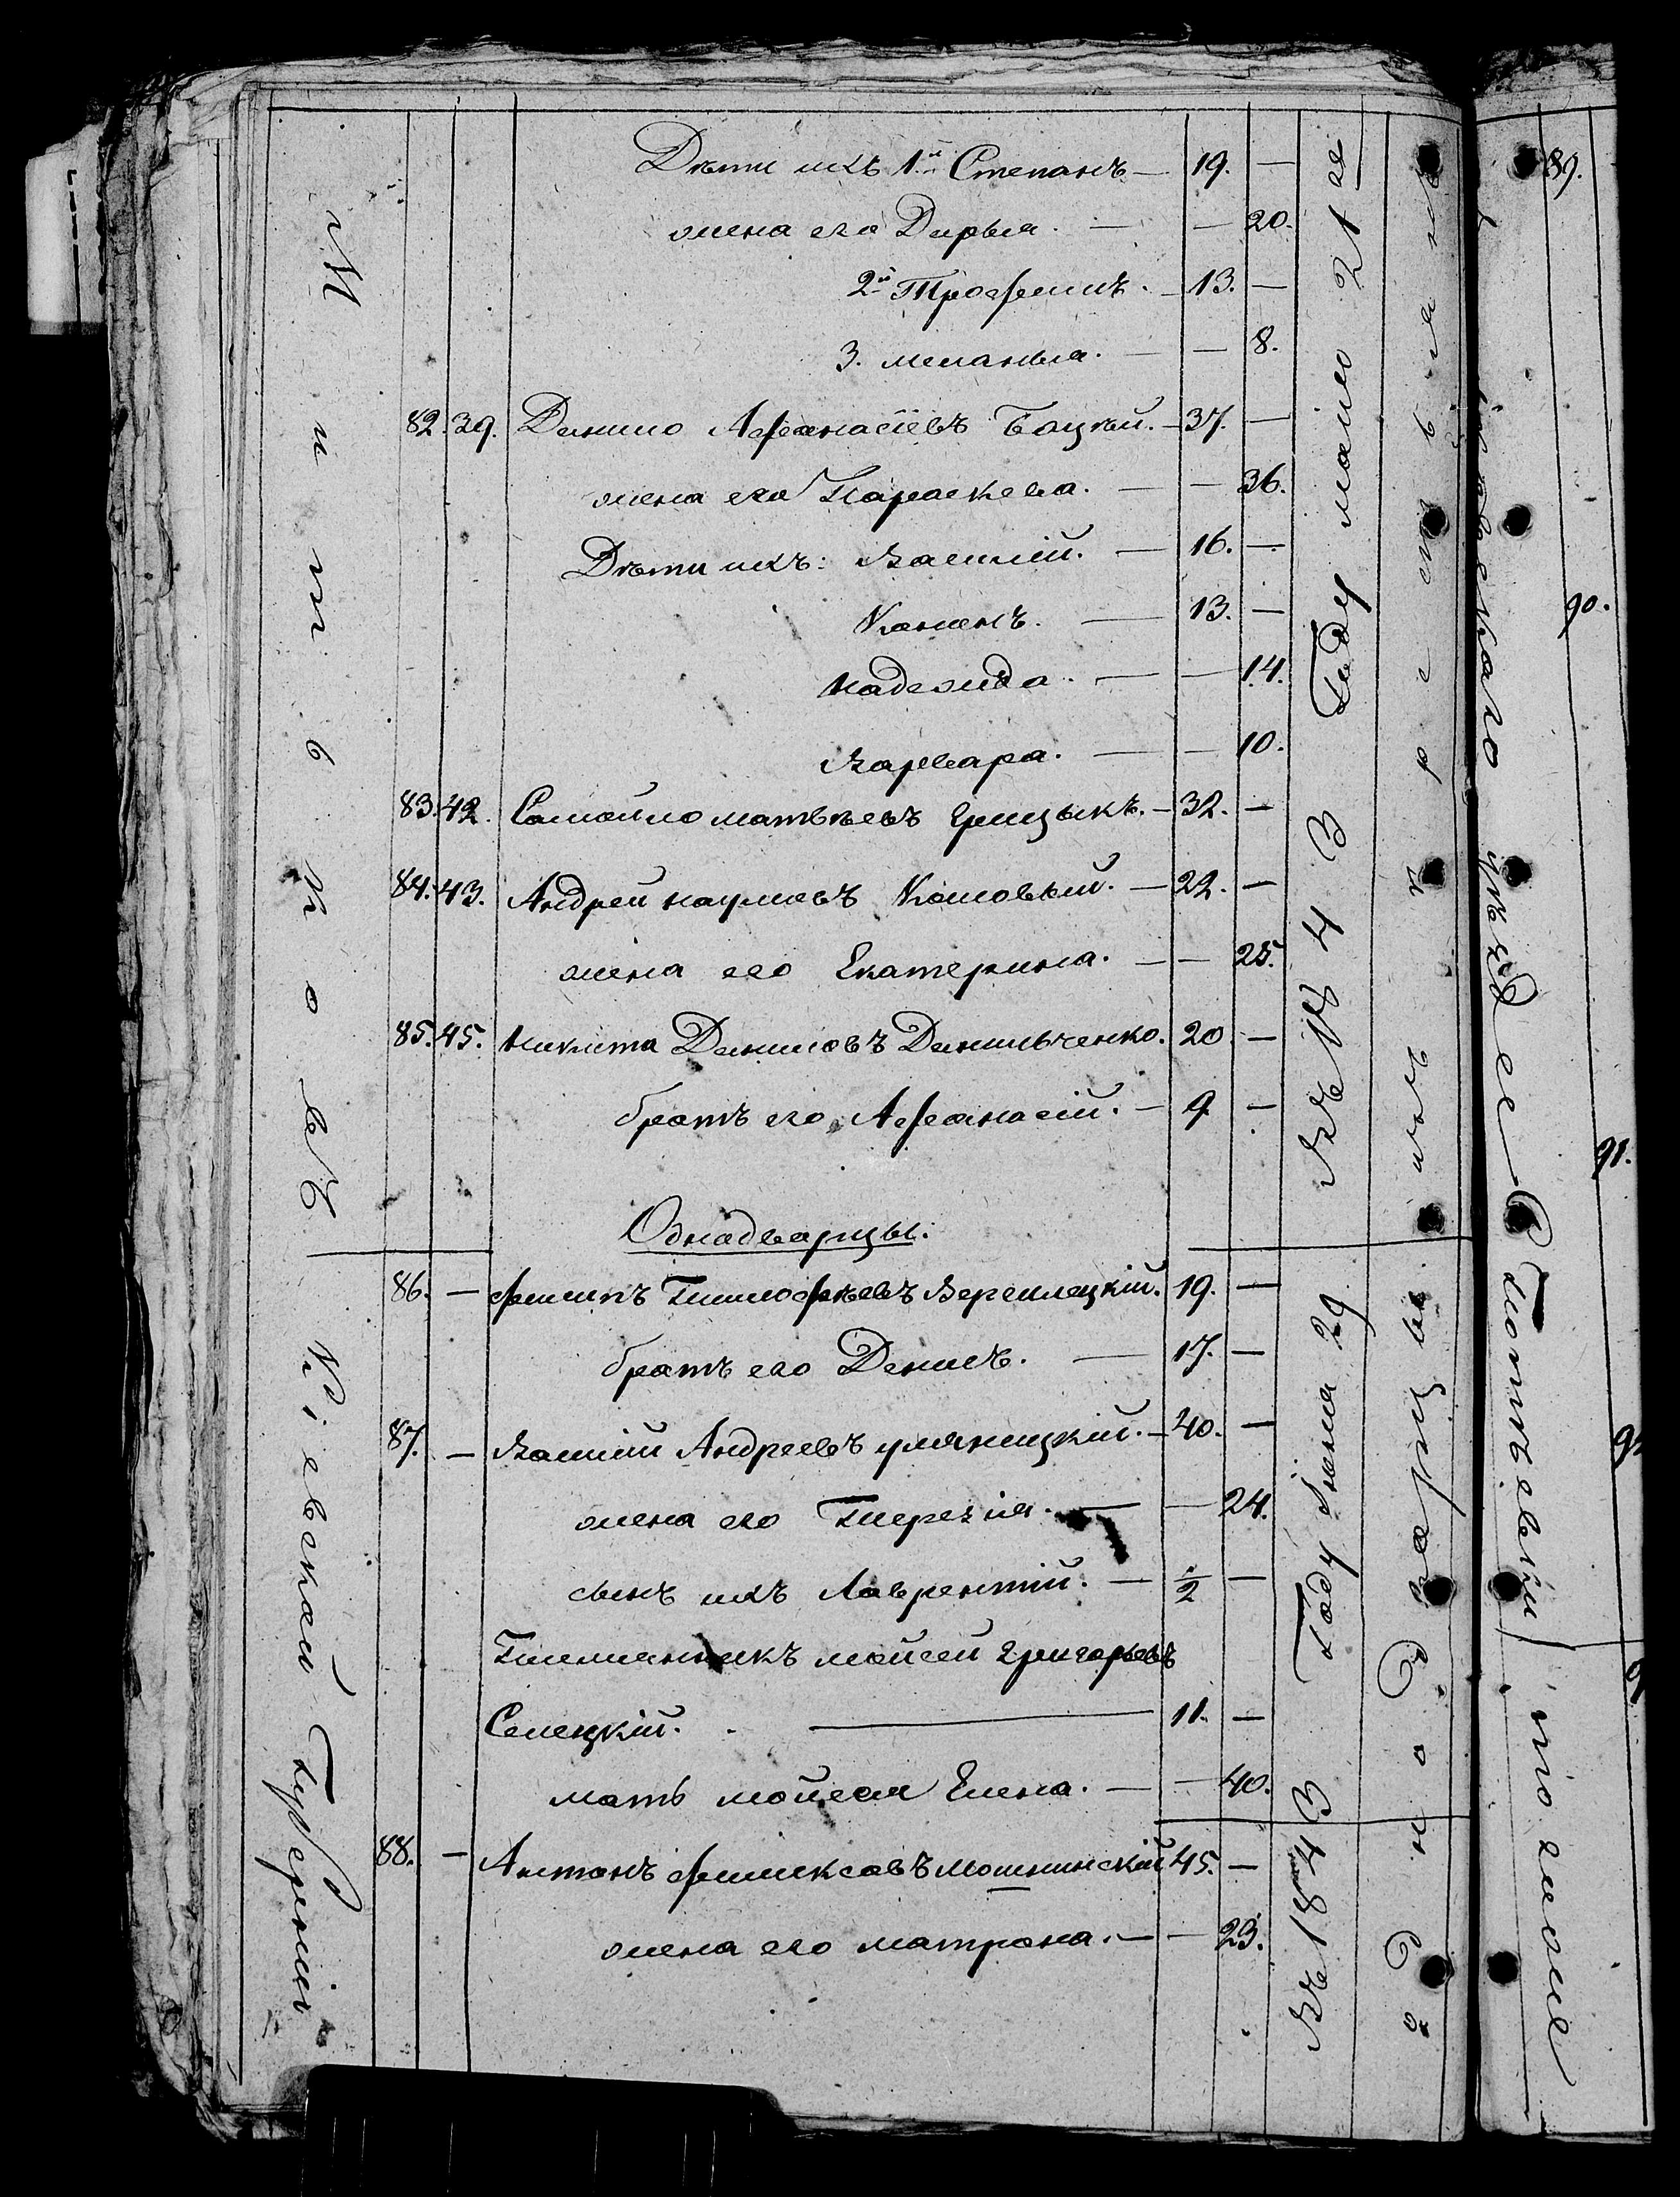 Дѣти ихъ 1й Степанъ — 19. —
жена его Дарья. — — 20.
2й Трофимъ. — 13. —
3. Меланья. — — 8.
82. 39. Данило Афанасіевъ Боцкій. — 37. —
жена его Параскева. — — 36.
Дѣти ихъ: Василій. — 16. —
Кононъ. — 13. —
Надежда. — — 14.
Варвара. — — 10.
83. 42. Самойло Матвѣевъ Грицыкъ. — 32. —
84. 43. Андрей Наумовъ — 22. —
жена его Екатерина. — — 25.
85. 45. Никита Даниловъ Данильченко. 20 —
братъ его Афанасій. — 9 —
Однодворцы:
86. — Филипъ Тимофѣевъ 19. —
братъ его Денисъ. — 17. —
87. — Василій Андреевъ Уляницкій. — 40. —
жена его Терезія. — — 24.
сынъ ихъ Лаврентій. — ½ —
Племянникъ Мойсей Григорьевъ
Селецкій. — 11. —
мать Мойсея Елена. — — 40.
88. — Антонъ Феликсовъ 45. —
жена его Матрона. — — 29.
Кіевской Губерніи
Въ 1843 Году маия 21 го
Въ 1843 Году Іюня 29
Уѣзда
тоже
89.
90.
91.